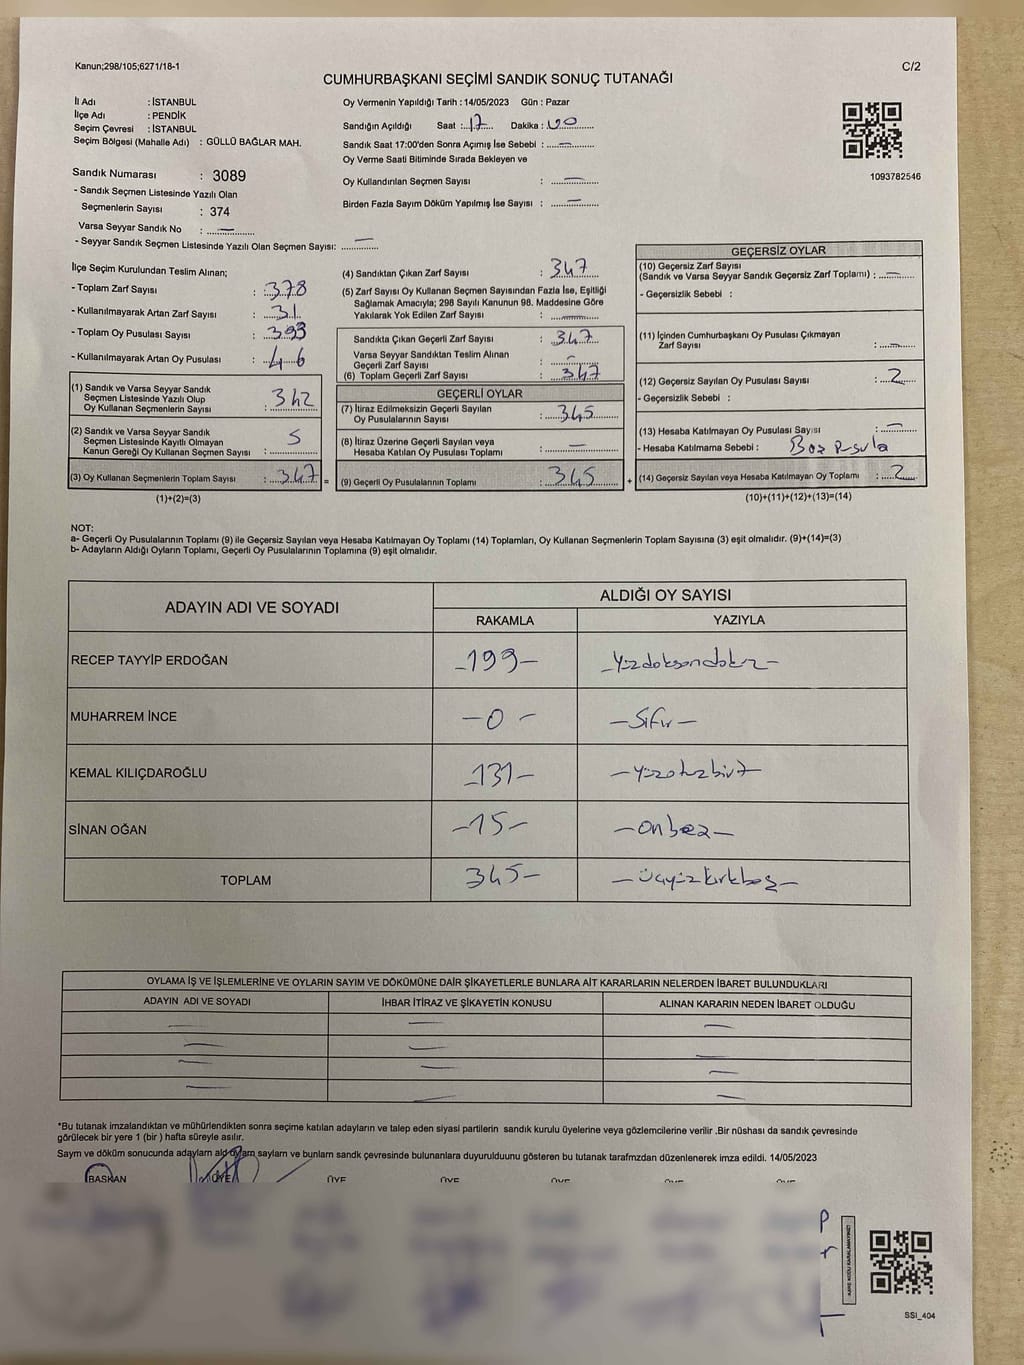 Kanun;298/105;6271/18-1
C/2
CUMHURBAŞKANI SEÇİMİ SANDIK SONUÇ TUTANAĞI
İl Adı : İSTANBUL
İlçe Adı : PENDİK
Seçim Çevresi : İSTANBUL
Seçim Bölgesi (Mahalle Adı) : GÜLLÜ BAĞLAR MAH.
Sandık Numarası : 3089
- Sandık Seçmen Listesinde Yazılı Olan
Seçmenlerin Sayısı : 374
Varsa Seyyar Sandık No : —
- Seyyar Sandık Seçmen Listesinde Yazılı Olan Seçmen Sayısı: —
Oy Vermenin Yapıldığı Tarih : 14/05/2023 Gün : Pazar
Sandığın Açıldığı Saat : 17 Dakika : 00
Sandık Saat 17:00'den Sonra Açımış İse Sebebi : —
Oy Verme Saati Bitiminde Sırada Bekleyen ve
Oy Kullandırılan Seçmen Sayısı : —
Birden Fazla Sayım Döküm Yapılmış İse Sayısı : —
1093782546
İlçe Seçim Kurulundan Teslim Alınan;
- Toplam Zarf Sayısı : 378
- Kullanılmayarak Artan Zarf Sayısı : 31
- Toplam Oy Pusulası Sayısı : 393
- Kullanılmayarak Artan Oy Pusulası : 46
(1) Sandık ve Varsa Seyyar Sandık
Seçmen Listesinde Yazılı Olup
Oy Kullanan Seçmenlerin Sayısı : 342
(2) Sandık ve Varsa Seyyar Sandık
Seçmen Listesinde Kayıtlı Olmayan
Kanun Gereği Oy Kullanan Seçmen Sayısı : 5
(3) Oy Kullanan Seçmenlerin Toplam Sayısı : 347 =
(1)+(2)=(3)
(4) Sandıktan Çıkan Zarf Sayısı : 347
(5) Zarf Sayısı Oy Kullanan Seçmen Sayısından Fazla İse, Eşitliği
Sağlamak Amacıyla; 298 Sayılı Kanunun 98. Maddesine Göre
Yakılarak Yok Edilen Zarf Sayısı : —
Sandıkta Çıkan Geçerli Zarf Sayısı : 347
Varsa Seyyar Sandıktan Teslim Alınan
Geçerli Zarf Sayısı : —
(6) Toplam Geçerli Zarf Sayısı : 347
GEÇERLİ OYLAR
(7) İtiraz Edilmeksizin Geçerli Sayılan
Oy Pusulalarının Sayısı : 345
(8) İtiraz Üzerine Geçerli Sayılan veya
Hesaba Katılan Oy Pusulası Toplamı : —
(9) Geçerli Oy Pusulalarının Toplamı : 345 +
GEÇERSİZ OYLAR
(10) Geçersiz Zarf Sayısı
(Sandık ve Varsa Seyyar Sandık Geçersiz Zarf Toplamı) : —
- Geçersizlik Sebebi :
(11) İçinden Cumhurbaşkanı Oy Pusulası Çıkmayan
Zarf Sayısı : —
(12) Geçersiz Sayılan Oy Pusulası Sayısı : 2
- Geçersizlik Sebebi :
(13) Hesaba Katılmayan Oy Pusulası Sayısı : —
- Hesaba Katılmama Sebebi : Boş Pusula
(14) Geçersiz Sayılan veya Hesaba Katılmayan Oy Toplamı : 2
(10)+(11)+(12)+(13)=(14)
NOT:
a- Geçerli Oy Pusulalarının Toplamı (9) ile Geçersiz Sayılan veya Hesaba Katılmayan Oy Toplamı (14) Toplamları, Oy Kullanan Seçmenlerin Toplam Sayısına (3) eşit olmalıdır. (9)+(14)=(3)
b- Adayların Aldığı Oyların Toplamı, Geçerli Oy Pusulalarının Toplamına (9) eşit olmalıdır.
ADAYIN ADI VE SOYADI
ALDIĞI OY SAYISI
RAKAMLA YAZIYLA
RECEP TAYYİP ERDOĞAN -199- -yüzdoksandokuz-
MUHARREM İNCE -0- -Sıfır-
KEMAL KILIÇDAROĞLU -131- -yüzotuzbir-
SİNAN OĞAN -15- -onbeş-
TOPLAM 345- -üçyüzkırkbeş-
OYLAMA İŞ VE İŞLEMLERİNE VE OYLARIN SAYIM VE DÖKÜMÜNE DAİR ŞİKAYETLERLE BUNLARA AİT KARARLARIN NELERDEN İBARET BULUNDUKLARI
ADAYIN ADI VE SOYADI İHBAR İTİRAZ VE ŞİKAYETİN KONUSU ALINAN KARARIN NEDEN İBARET OLDUĞU
*Bu tutanak imzalandıktan ve mühürlendikten sonra seçime katılan adayların ve talep eden siyasi partilerin sandık kurulu üyelerine veya gözlemcilerine verilir .Bir nüshası da sandık çevresinde
görülecek bir yere 1 (bir ) hafta süreyle asılır.
Sayım ve döküm sonucunda adayların aldığı oyların sayıları ve bunların sandık çevresinde bulunanlara duyurulduğunu gösteren bu tutanak tarafımızdan düzenlenerek imza edildi. 14/05/2023
BAŞKAN ÜYE ÜYE ÜYE ÜYE ÜYE ÜYE
KARE KODU KARALAMAYINIZ!
SSI_404